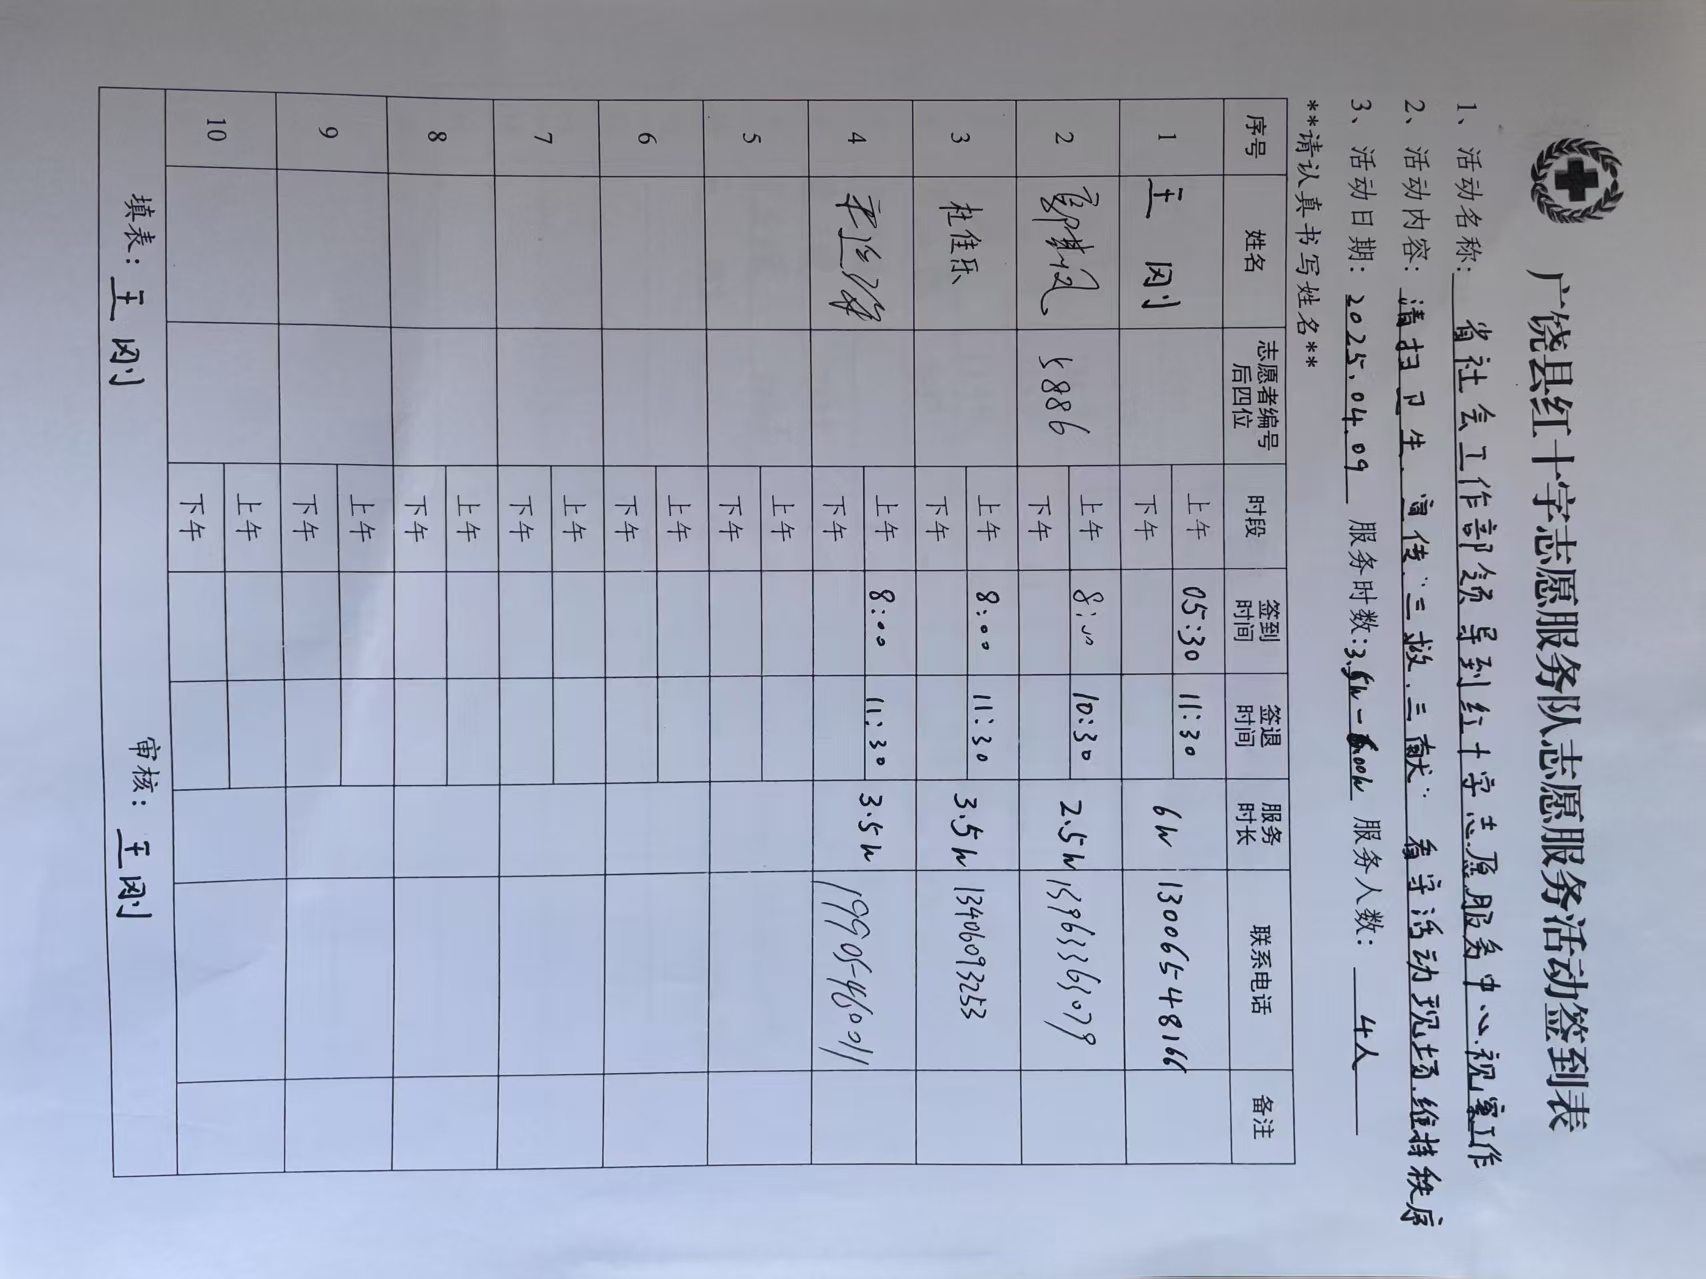 广饶县红十字志愿服务队志愿服务活动签到表
1、活动名称：省社会工作部领导到红十字志愿服务中心视察工作
2、活动内容：清扫卫生、宣传“三救、三献”、看守活动现场、维持秩序
3、活动日期：2025.04.09 服务时数：3.5h－6.00h 服务人数：4人
**请认真书写姓名**
序号 姓名 志愿者编号后四位 时段 签到时间 签退时间 服务时长 联系电话 备注
1 王刚 上午 05:30 11:30 6h 13006548166
下午
2 5886 上午 8:00 10:30 2.5h 15963363079
下午
3 杜佳乐 上午 8:00 11:30 3.5h 13406093253
下午
4 上午 8:00 11:30 3.5h
下午
5 上午
下午
6 上午
下午
7 上午
下午
8 上午
下午
9 上午
下午
10 上午
下午
填表：王刚 审核：王刚